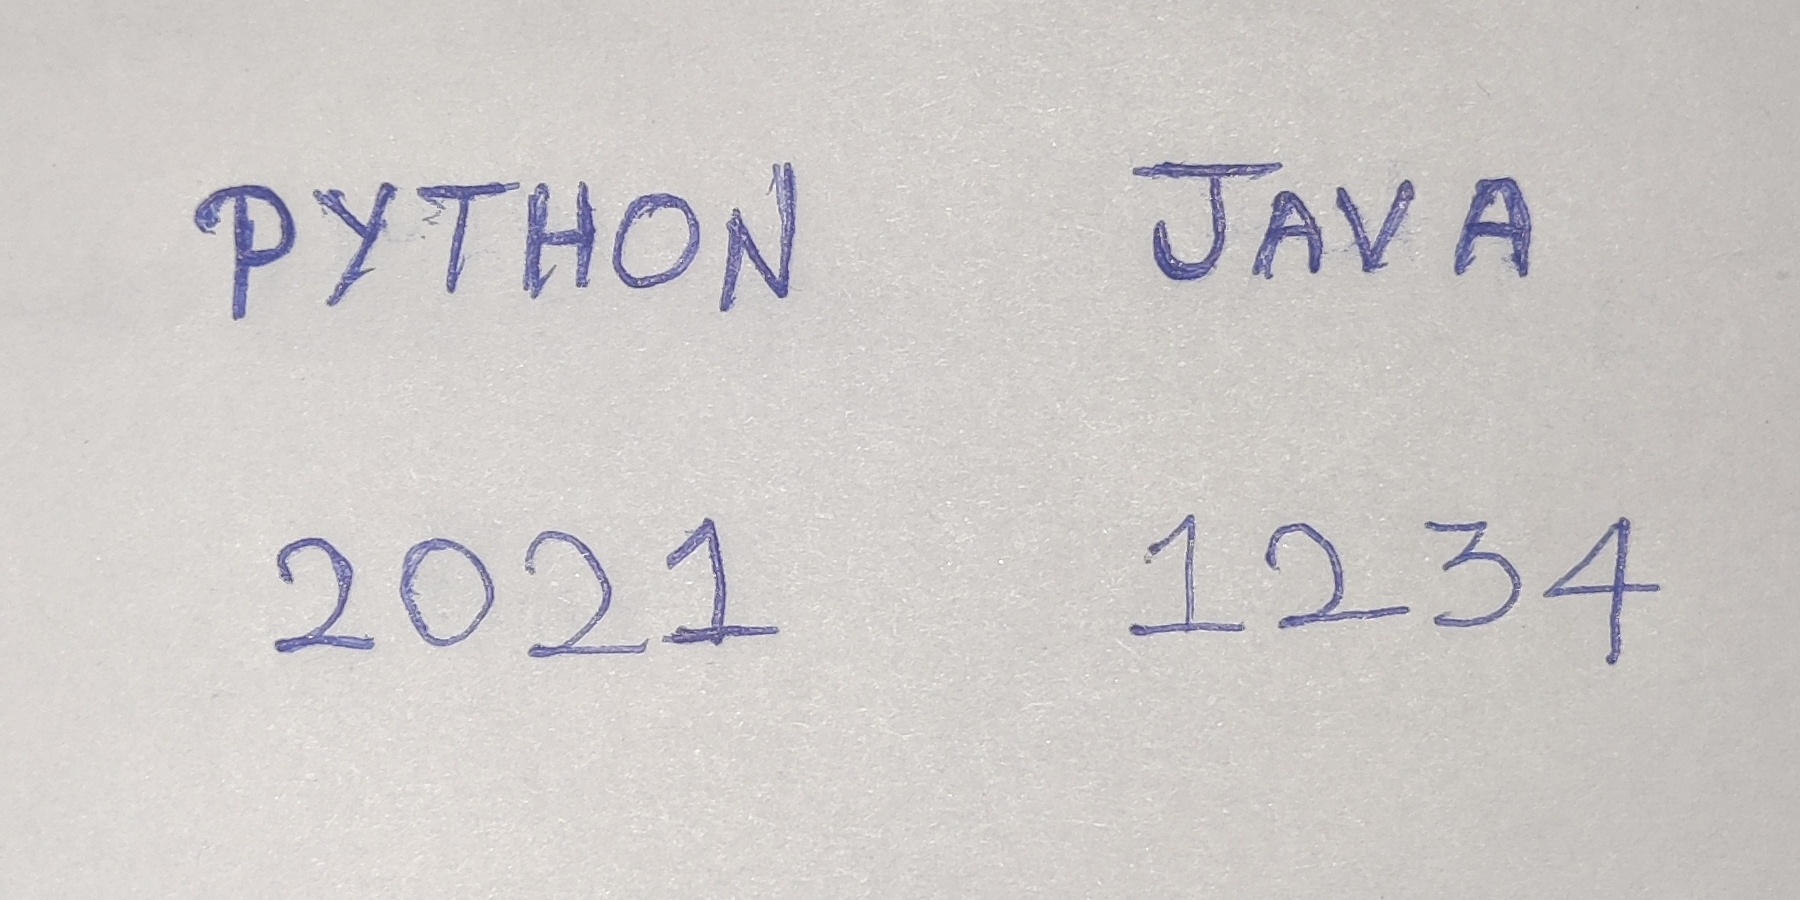 PYTHON JAVA
2021 1234